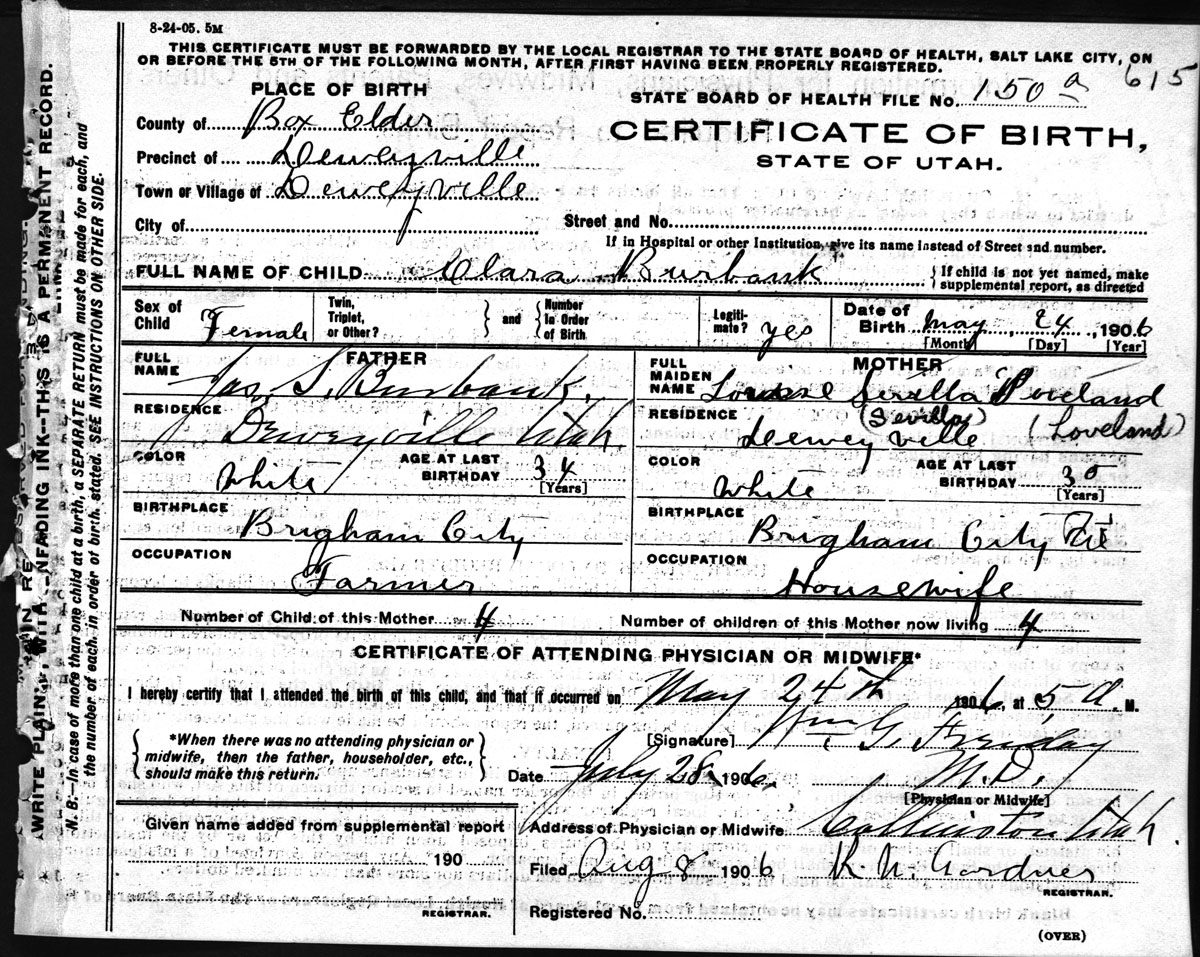 8-24-05. 5M
THIS CERTIFICATE MUST BE FORWARDED BY THE LOCAL REGISTRAR TO THE STATE BOARD OF HEALTH, SALT LAKE CITY, ON
OR BEFORE THE 5TH OF THE FOLLOWING MONTH, AFTER FIRST HAVING BEEN PROPERLY REGISTERED.
615
PLACE OF BIRTH
STATE BOARD OF HEALTH FILE No. 150 a
County of Box Elder
CERTIFICATE OF BIRTH,
STATE OF UTAH.
Precinct of Deweyville
Town or Village of Deweyville
City of
Street and No.
If in Hospital or other Institution, give its name instead of Street and number.
FULL NAME OF CHILD Clara Burbank
If child is not yet named, make
supplemental report, as directed
Sex of Child Female
Twin, Triplet, or Other?
and
Number In Order of Birth
Legitimate? yes
Date of Birth May 24, 1906
[Month] [Day] [Year]
FATHER
FULL NAME Jas. S. Burbank.
RESIDENCE Deweyville Utah
COLOR White
AGE AT LAST BIRTHDAY 34
[Years]
BIRTHPLACE
Brigham City
OCCUPATION
Farmer
MOTHER
FULL MAIDEN NAME Louise
(Sevilla) (Loveland)
RESIDENCE Deweyville
COLOR White
AGE AT LAST BIRTHDAY 30
[Years]
BIRTHPLACE
Brigham City
OCCUPATION
Housewife
Number of Child of this Mother 4
Number of children of this Mother now living 4
CERTIFICATE OF ATTENDING PHYSICIAN OR MIDWIFE*
I hereby certify that I attended the birth of this child, and that it occurred on May 24th 1906, at 5 A. M.
*When there was no attending physician or
midwife, then the father, householder, etc.,
should make this return.
[Signature] Wm G. Friday
Date July 28 1906, M.D.
[Physician or Midwife]
Given name added from supplemental report
190
REGISTRAR.
Address of Physician or Midwife Collinston Utah.
Filed Aug 8 1906 K. N. Gardner
REGISTRAR.
Registered No.
(OVER)
WRITE PLAINLY, WITH UNFADING INK--THIS IS A PERMANENT RECORD.
N. B.—In case of more than one child at a birth, a SEPARATE RETURN must be made for each, and
the number of each, in order of birth, stated. SEE INSTRUCTIONS ON OTHER SIDE.